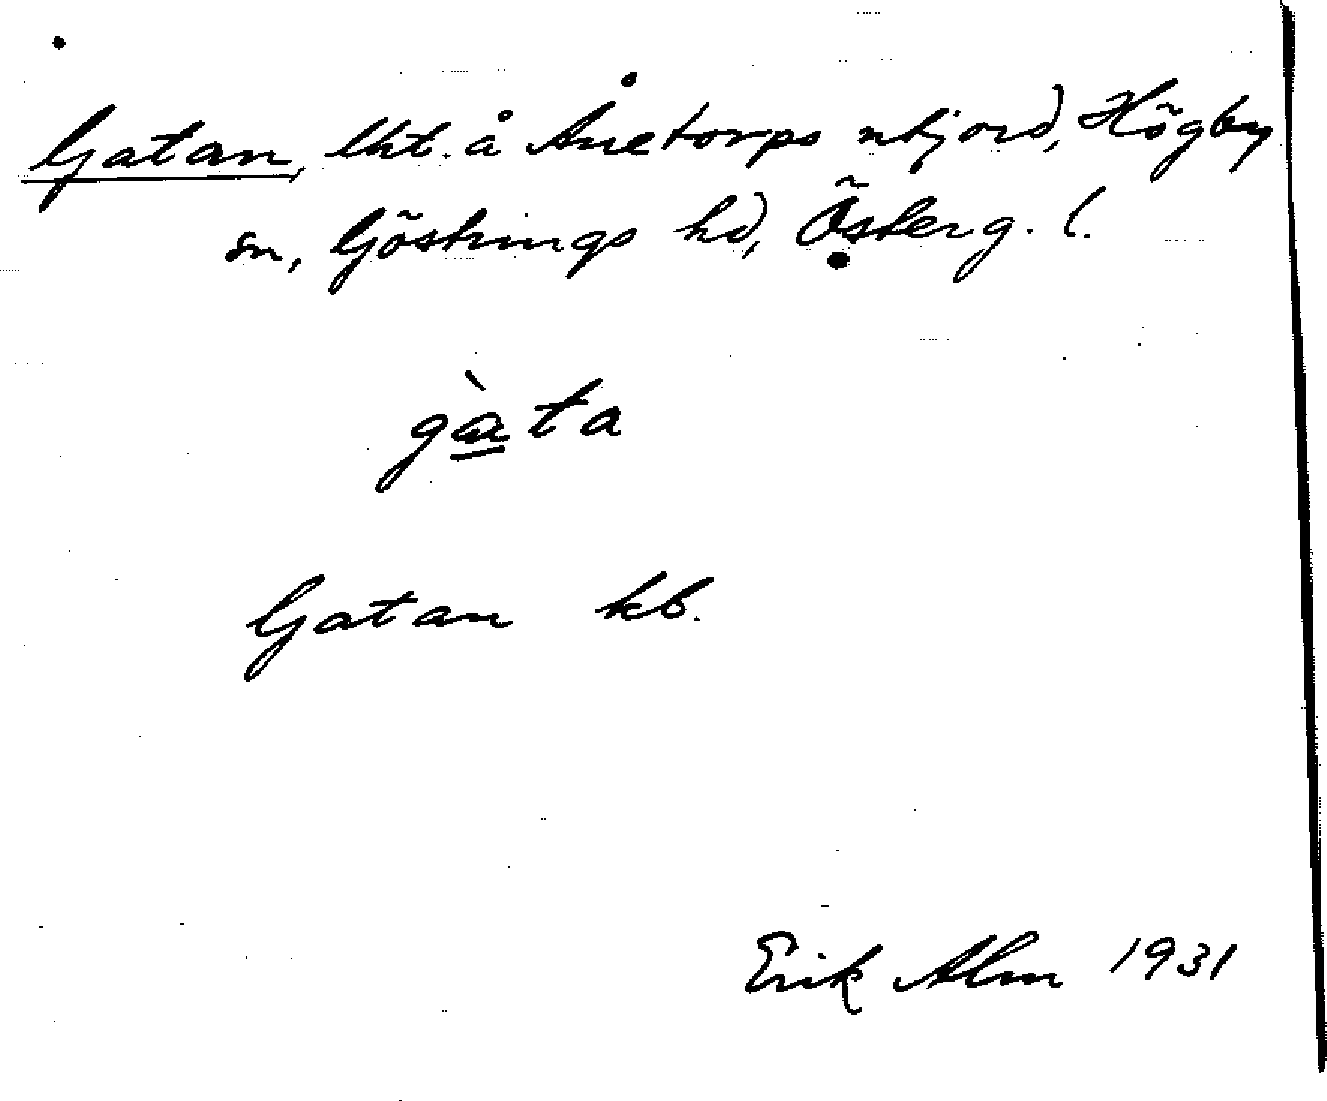 Gatan, lht. å Ånetorps utjord, Högby
sn, Göstrings hd, Österg. l.
gàta
Gatan kb.
Erik Alm 1931